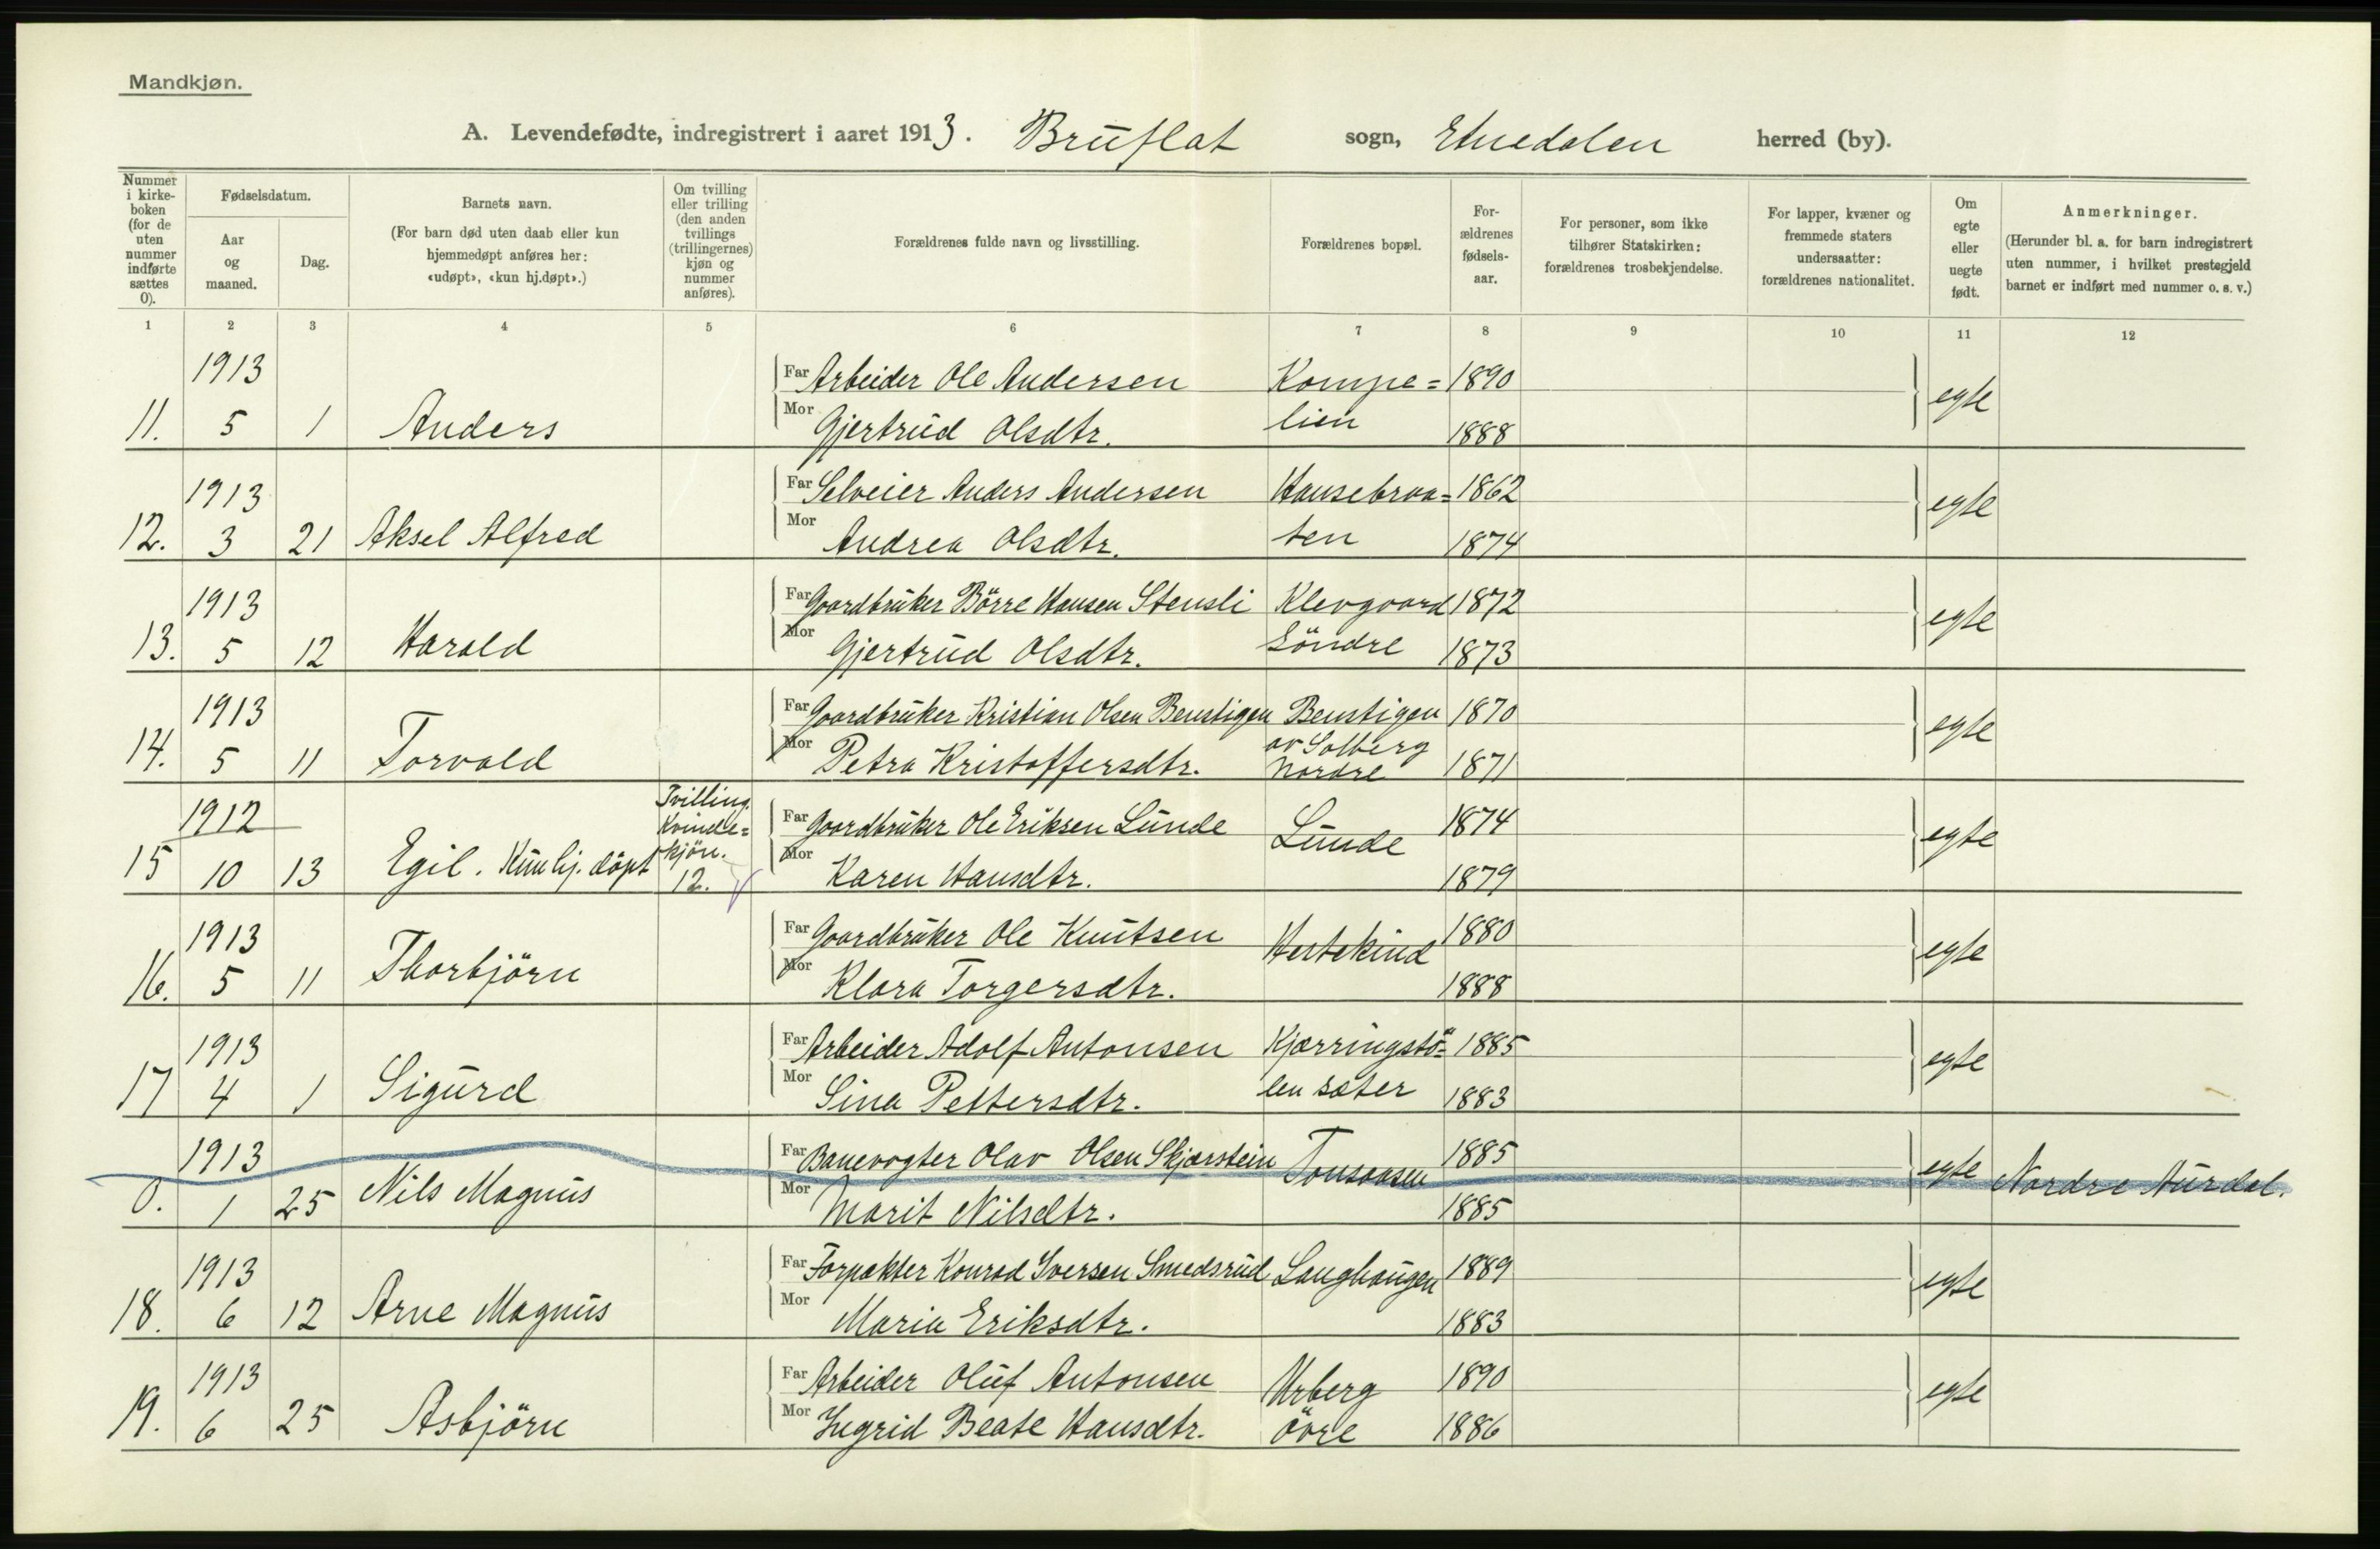 Mandkjøn.
A. Levendefødte, indregistrert i aaret 1913. Bruflat sogn, Etnedalen herred (by).
Nummer i kirke- boken (for de uten nummer indførte sættes 0).
Fødselsdatum.
Aar og maaned.
Dag.
Barnets navn.
(For barn død uten daab eller kun hjemmedøpt anføres her: «udøpt», «kun hj.døpt».)
Om tvilling eller trilling (den anden tvillings (trillingernes) kjøn og nummer anføres).
Forældrenes fulde navn og livsstilling.
Forældrenes bopæl.
For- ældrenes fødsels- aar.
For personer, som ikke tilhører Statskirken: forældrenes trosbekjendelse.
For lapper, kvæner og fremmede staters undersaatter: forældrenes nationalitet.
Om egte eller uegte født.
Anmerkninger.
(Herunder bl. a. for barn indregistrert uten nummer, i hvilket prestegjeld barnet er indført med nummer o. s. v.)
1 2 3 4 5 6 7 8 9 10 11 12
1913 Far Arbeider Ole Andersen Kompe= 1890
11. 5 1 Anders Mor Gjertrud Olsdtr. lien 1888 egte
1913 Far Selveier Anders Andersen Hansebraa= 1862
12. 3 21 Aksel Alfred Mor Andrea Olsdtr. ten 1874 egte
1913 Far Gaardbruker Börre Hansen Stensli Klevgaard 1872
13. 5 12 Harald Mor Gjertrud Olsdtr. söndre 1873 egte
1913 Far Gaardbruker Kristian Olsen Benstigen Benstigen 1870
14. 5 11 Torvald Mor Petra Kristoffersdtr. av Solberg nordre 1871 egte
1912 Tvilling. Kvinde= kjön. 12. Far Gaardbruker Ole Eriksen Lunde Lunde 1874
15 10 13 Egil. Kun hj. döpt Mor Karen Hansdtr. 1879 egte
1913 Far Gaardbruker Ole Knutsen Hestekind 1880
16. 5 11 Thorbjörn Mor Klara Torgersdtr. 1888 egte
1913 Far Arbeider Adolf Antonsen Kjærringstö= 1885
17 4 1 Sigurd Mor Sina Pettersdtr. len sæter 1883 egte
1913 Far Banevogter Olav Olsen Skjærstein Tonsaasen 1885
0. 1 25 Nils Magnus Mor Marit Nilsdtr. 1885 egte Nordre Aurdal.
1913 Far Forpakter Konrad Iversen Smedsrud Langhaugen 1889
18. 6 12 Arne Magnus Mor Maria Eriksdtr. 1883 egte
1913 Far Arbeider Oluf Antonsen Urberg 1890
19. 6 25 Asbjörn Mor Ingrid Beate Hansdtr. övre 1886 egte